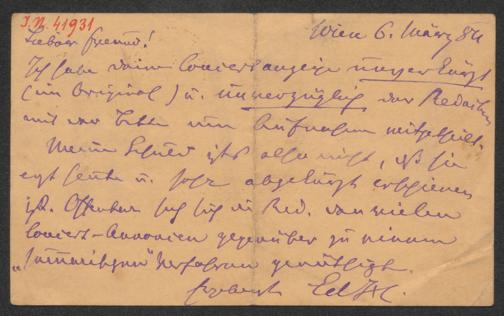 I.N. 41931
Wien 6. März 84
Lieber Freund!
Ich habe deine Concertanzeige unverkürzt
(im Original) u. unverzüglich der Redaction
mit der Bitte um Aufnahme mitgetheilt.
Meine Schuld ists also nicht, daß sie
erst heute u. sehr abgekürzt erschienen
ist. Offenbar sah sich die Red. den vielen
Concert-Annoncen gegenüber zu einem
„summarischen" Verfahren genöthigt.
Ergebenst Ed